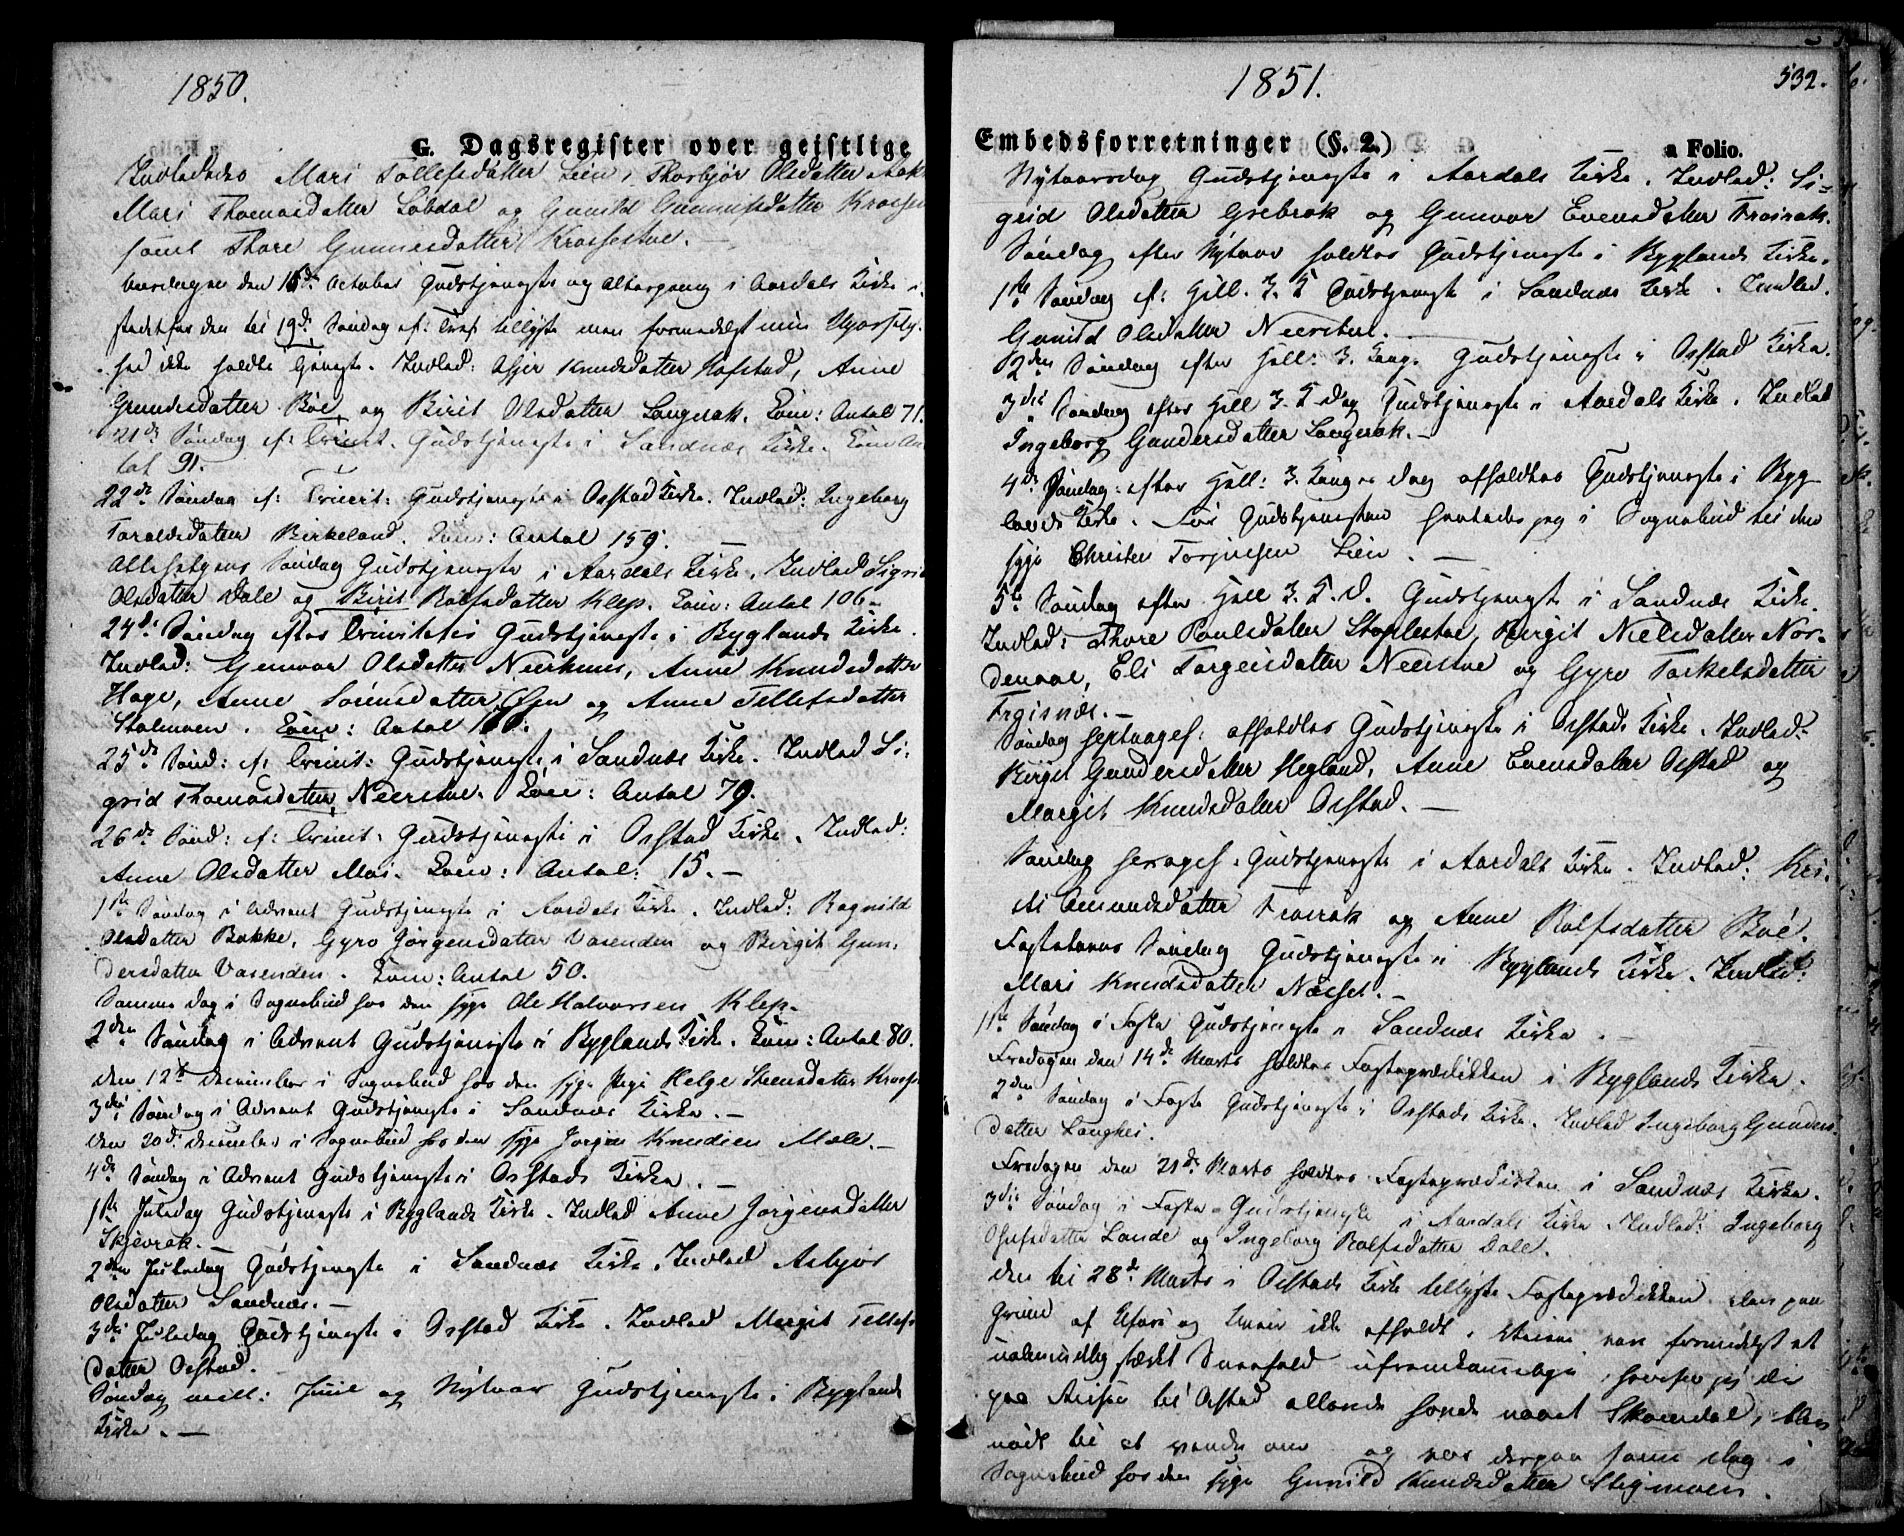 1850.
G. Dagsregister over geistlige
Indlededes Mari Tollefsdatter Lien, Thorbjør Olsdatter
Mari Thomasdatter Løbdal og Gunild Gunnufsdatter
samt Thore Gunnufsdatter Krossestue.
den 16de October Gudstjeneste og Altergang i Aardals Kirke i
stedetfor den til 19de Søndag ef: Trinit tillyste men formedelst min
hed ikke holdte Tjeneste. Indled: Knudsdatter Hofstad, Anne
Gundersdatter Bøe og Birit Olsdatter Langerak. Com: Antal 71.
21de Søndag ef: Trinit. Gudstjeneste i Sandnæs Kirke. Com: An
tal 91.
22de Søndag ef: Trinit: Gudstjeneste i Osstad Kirke. Indled: Ingeborg
Taraldsdatter Birkeland. Com: Antal 159.
Allehelgens Søndag Gudstjeneste i Aardals Kirke. Indled Sigrid
Olsdatter Dale og Birit Rolfsdatter Klep. Com: Antal 106.
24de Søndag efter Trinitatis Gudstjeneste i Byglands Kirke.
Indled: Gunvor Olsdatter Neerhuus, Anne Knudsdatter
Hage, Anne Sørensdatter og Anne Tellefsdatter
Stalmoen. Com: Antal
25de Sønd: ef: Trinit: Gudstjeneste i Sandnæs Kirke. Indled Si:
grid Thomasdatter Neerstue. Com: Antal 79.
26de Sønd: ef: Trinit: Gudstjeneste i Osstad Kirke. Indled:
Anne Olsdatter Moi. Com: Antal: 15. —
1ste Søndag i Advent Gudstjeneste i Aardals Kirke. Indled: Ragnild
Olsdatter Bakke, Gyro Jørgensdatter Vasenden og Birgit Gun:
dersdatter Vasenden. Com: Antal 50.
Samme Dag i Sognebud hos den syge Ole Halvorsen Klep.
2den Søndag i Advent Gudstjeneste i Byglands Kirke. Com: Antal 80.
den 12te December i Sognebud hos den syge Pige Helge Steensdatter
3die Søndag i Advent Gudstjeneste i Sandnæs Kirke. —
den 20de December i Sognebud hos den syge Jørgen Knudsen Mæle. —
4de Søndag i Advent Gudstjeneste i Osstads Kirke. —
1ste Juledag Gudstjeneste i Byglands Kirke. Indled Anne Jørgensdatter
Skjevrak.
2den Juledag Gudstjeneste i Sandnæs Kirke. Indled Asbjør
Olsdatter Sandnæs. —
3die Juledag Gudstjeneste i Osstad Kirke. Indled Margit Tellefs
datter Osstad.
Søndag mell: Juul og Nytaar Gudstjeneste i Byglands
Kirke. —
1851.
532.
Embedsforretninger (§. 2.)
a Folio.
Nytaarsdag Gudstjeneste i Aardals Kirke. Indled: Si=
grid Olsdatter Grebrok og Gunvor Evensdatter Frøirak.
Søndag efter Nytaar holdtes Gudstjeneste i Byglands Kirke.
1ste Søndag ef: Hell. 3. K Gudstjeneste i Sandnæs Kirke. Indled.
Gunild Olsdatter Neerstue. —
2den Søndag efter Hell: 3. Kong. Gudstjeneste i Osstad Kirke.
3die Søndag efter Hell 3. K Dag Gudstjeneste i Aardals Kirke. Indled
Ingeborg Gundersdatter Langerak. —
4de Søndag efter Hell: 3. Konge Dag afholdtes Gudstjeneste i Byg
lands Kirke. Før Gudstjenesten hentedes jeg i Sognebud til den
syge Christen Torjusen Lien. —
5te Søndag efter Hell 3. K. D. Gudstjeneste i Sandnæs Kirke.
Indled: Thore Poulsdatter Birgit Nielsdatter Nor=
denaae, Eli Torgeisdatter Neerstue og Gyro Torkelsdatter
Froisnæs. —
Søndag Septuages: afholdtes Gudstjeneste i Osstads Kirke. Indled:
Birgit Gundersdatter Hegland, Anne Evensdatter Osstad og
Margit Knudsdatter Osstad. —
Søndag Sexages. Gudstjeneste i Aardals Kirke. Indled: Kri:
sti Amundsdatter Frøirak og Anne Rolfsdatter Bøe.
Fastelavns Søndag Gudstjeneste i Byglands Kirke. Indled:
Mari Knudsdatter Næsset. —
1ste Søndag i Faste Gudstjeneste i Sandnæs Kirke. —
Fredagen den 14de Marts holdtes Fasteprædikken i Byglands Kirke.
2den Søndag i Faste Gudstjeneste i Osstads Kirke. Indled Ingeborg Gunders
datter Langhei.
Fredagen den 21de Marts holdtes Fasteprædikken i Sandnæs Kirke.
3die Søndag i Faste Gudstjeneste i Aardals Kirke. Indled: Ingeborg
Olufsdatter Lande og Ingeborg Rolfsdatter Dale.
den til 28de Marts i Osstads Kirke tillyste Fasteprædikken blev paa
Grund af Uføre og Uveir ikke afholdt, Veiene var formedelst et
ualmindelig stærkt Sneefald ufremkommelige, hvorfor jeg der
paa Reisen til Osstad allerede havde naaet Skomedal, blev
nødt til at vende om og var derpaa samme Dag i
Sognebud hos den syge Gunild Knudsdatter Stigmoen.